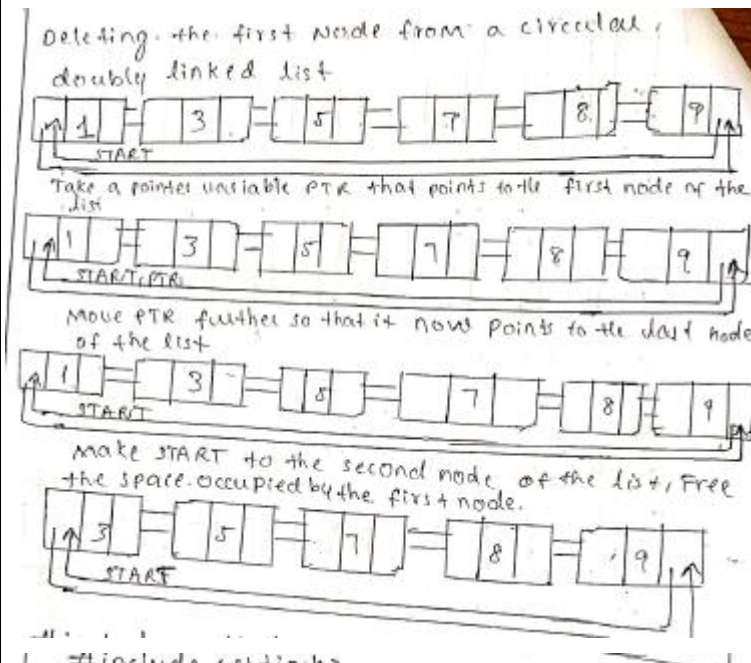 Deleting the first Node from a circular
doubly linked list
1 3 5 7 8 9
START
Take a pointer variable PTR that points to the first node of the
list
1 3 5 7 8 9
START, PTR
Move PTR further so that it now points to the last node
of the list
1 3 5 7 8 9
START
Make START to the second node of the list, Free
the space occupied by the first node.
3 5 7 8 9
START